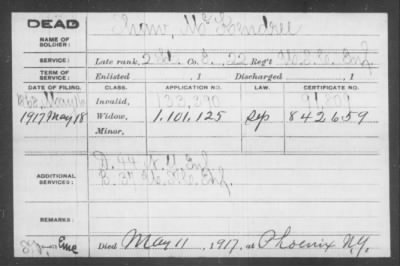 DEAD
Shaw, McKendree
NAME OF SOLDIER:
SERVICE: Late rank, 2 Lt. Co. E, 22 Reg't U.S.C. Inf.
TERM OF SERVICE: Enlisted , 1 Discharged , 1
DATE OF FILING. CLASS. APPLICATION NO. LAW. CERTIFICATE NO.
1868 May Invalid, 133,390
1917 May 18 Widow, 1,101,125 Sep 842659
Minor,
ADDITIONAL SERVICES: D. 44 N.Y. Inf.
B. 37 U.S.C. Inf.
REMARKS:
Died May 11, 1917, at Phoenix N.Y.